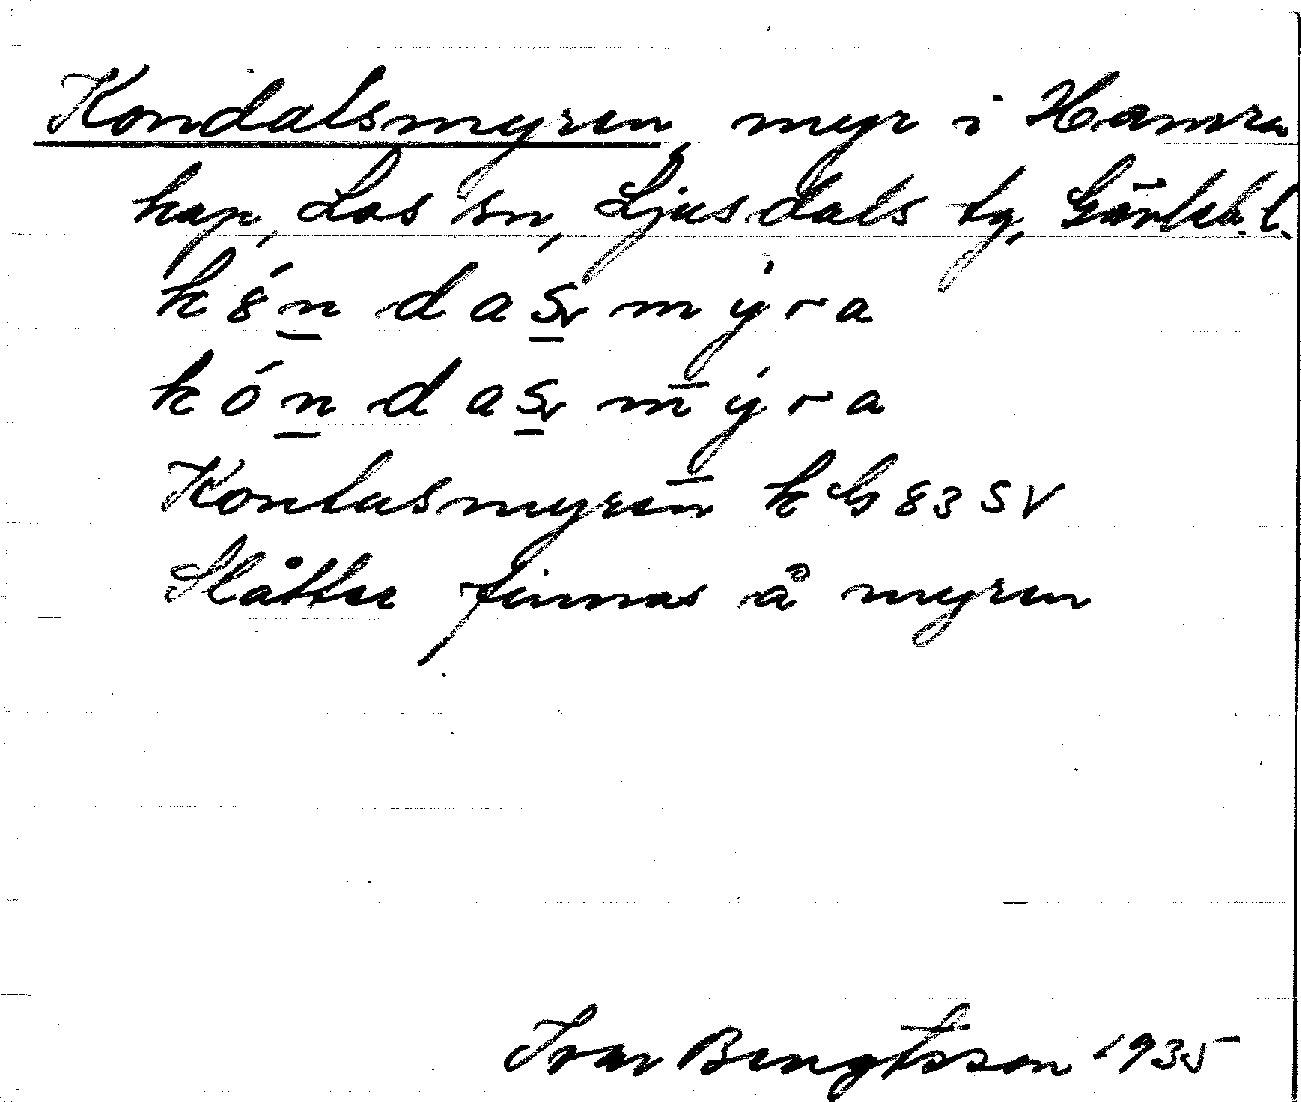 Kondalsmyren, myr i Hamra
kap, Los sn, Ljusdals tg, Gävleb. l.
k ó n d a s m ý r a
Kontasmyren k G 83 SV
Slåtter finnas å myren
Ivar Bengtsson 1935